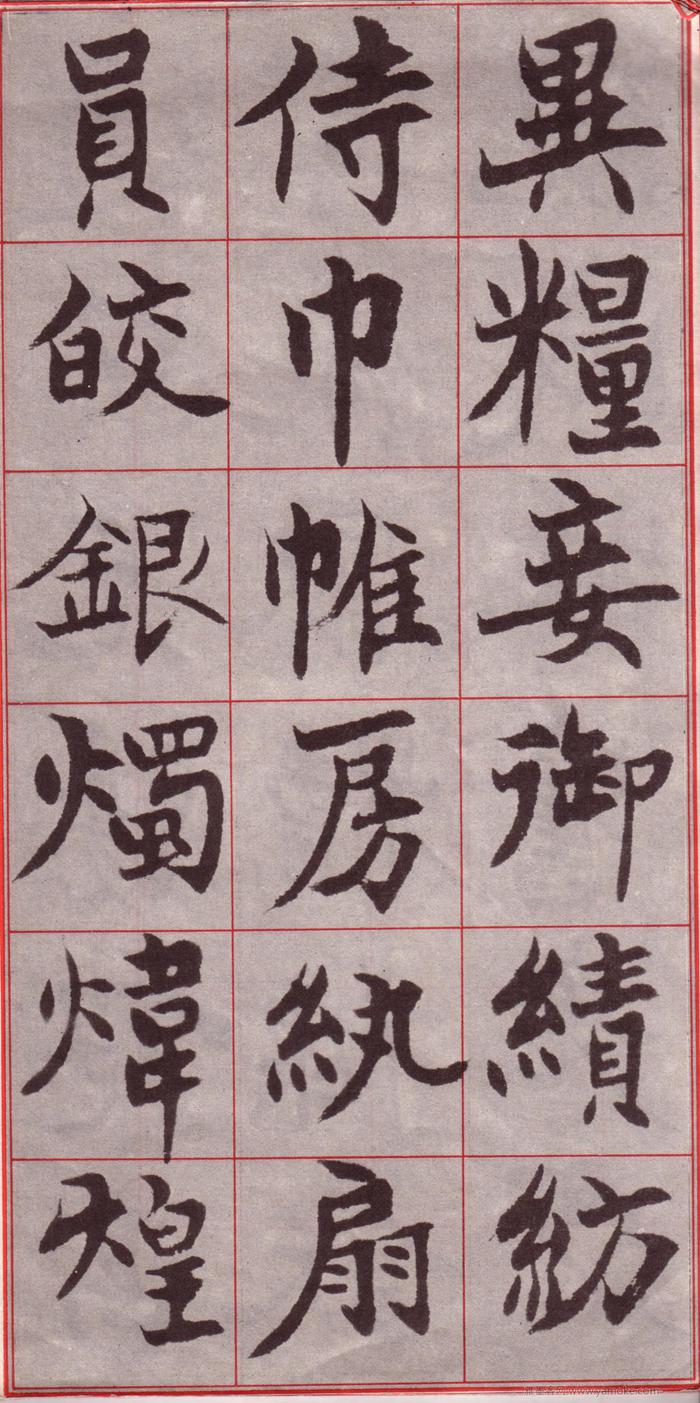 異糧妾御績紡
侍巾帷房紈扇
員皎銀燭煒煌
www.yamoke.com